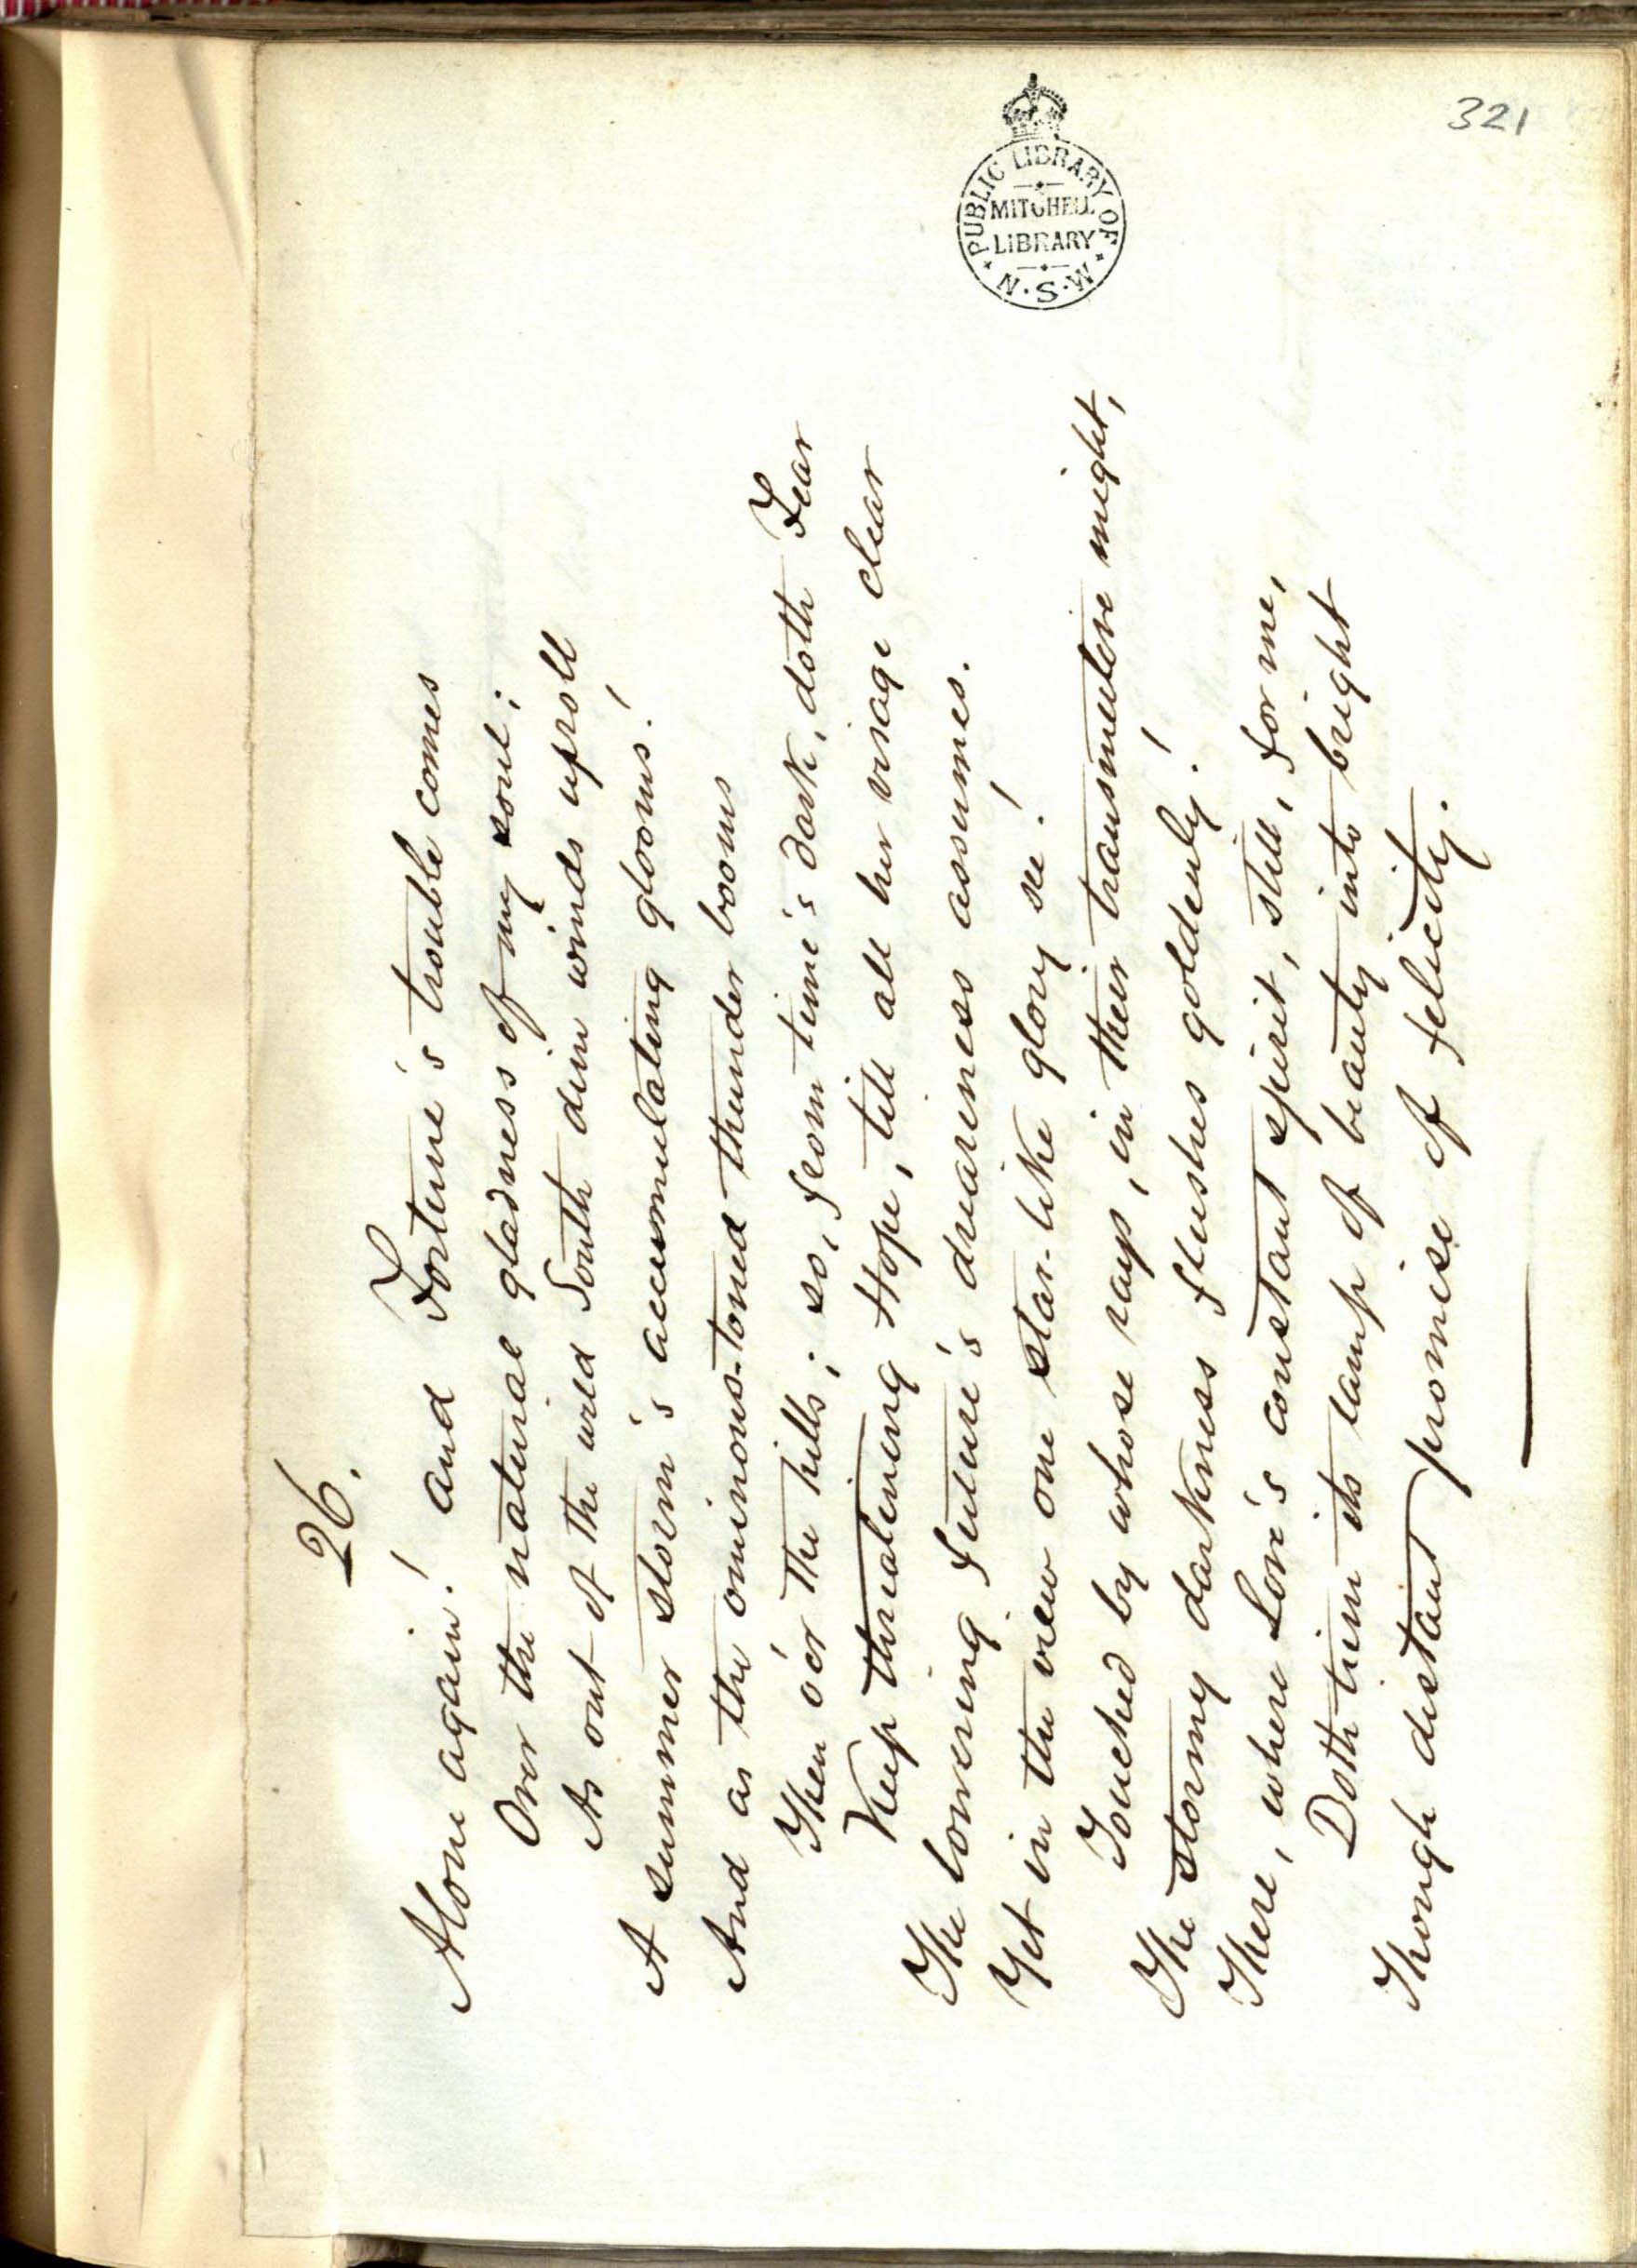 321
PUBLIC LIBRARY OF N.S.W.
MITCHELL
LIBRARY
26.
Alone again! and Fortune's trouble comes
Over the natural gladness of my soul;
As out of the wild South dim winds uproll
A summer storm's accumulating glooms!
And as the ominous-toned thunder booms
Then o'er the hills; so, from time's dark, doth Fear
Keep threatening Hope, till all her visage clear
The lowering future's drearness assumes.
Yet in the view one star-like glory see!
Touched by whose rays, in their transmutive might,
The stormy darkness flushes goldenly!
There, where Love's constant spirit, still, for me,
Doth trim its lamp of beauty into bright
Though distant promise of felicity.